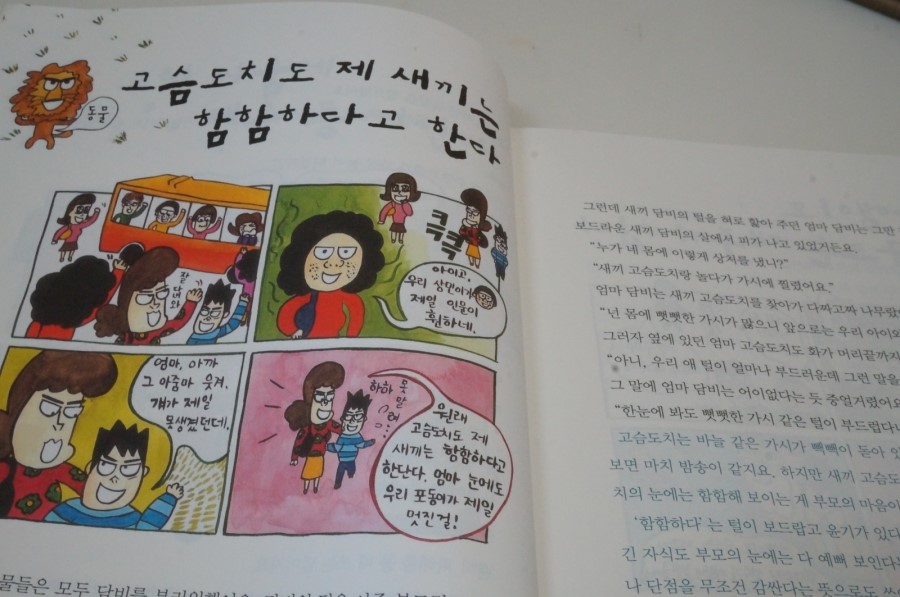 고슴도치도 제 새끼는
함함하다고 한다
동물
잘
다녀와
킥킥
아이고,
우리 상민이가
제일 인물이
훤하네.
엄마, 아까
그 아줌마 웃겨.
걔가 제일
못생겼던데.
하하
못
말
려
원래
고슴도치도 제
새끼는 함함하다고
한단다. 엄마 눈에도
우리 포동이가 제일
멋진걸!
물들은 모두 담비를
그런데 새끼 담비의 털을 혀로 핥아 주던 엄마 담비는 그만
보드라운 새끼 담비의 살에서 피가 나고 있었거든요.
“누가 네 몸에 이렇게 상처를 냈니?”
“새끼 고슴도치랑 놀다가 가시에 찔렸어요.”
엄마 담비는 새끼 고슴도치를 찾아가 다짜고짜 나무랐
“넌 몸에 뻣뻣한 가시가 많으니 앞으로는 우리 아이와
그러자 옆에 있던 엄마 고슴도치도 화가 머리끝까지
“아니, 우리 애 털이 얼마나 부드러운데 그런 말을
그 말에 엄마 담비는 어이없다는 듯 중얼거렸어요
“한눈에 봐도 뻣뻣한 가시 같은 털이 부드럽다니
고슴도치는 바늘 같은 가시가 빽빽이 돋아 있
보면 마치 밤송이 같지요. 하지만 새끼 고슴도
치의 눈에는 함함해 보이는 게 부모의 마음이
‘함함하다’는 털이 보드랍고 윤기가 있다
긴 자식도 부모의 눈에는 다 예뻐 보인다는
나 단점을 무조건 감싼다는 뜻으로도